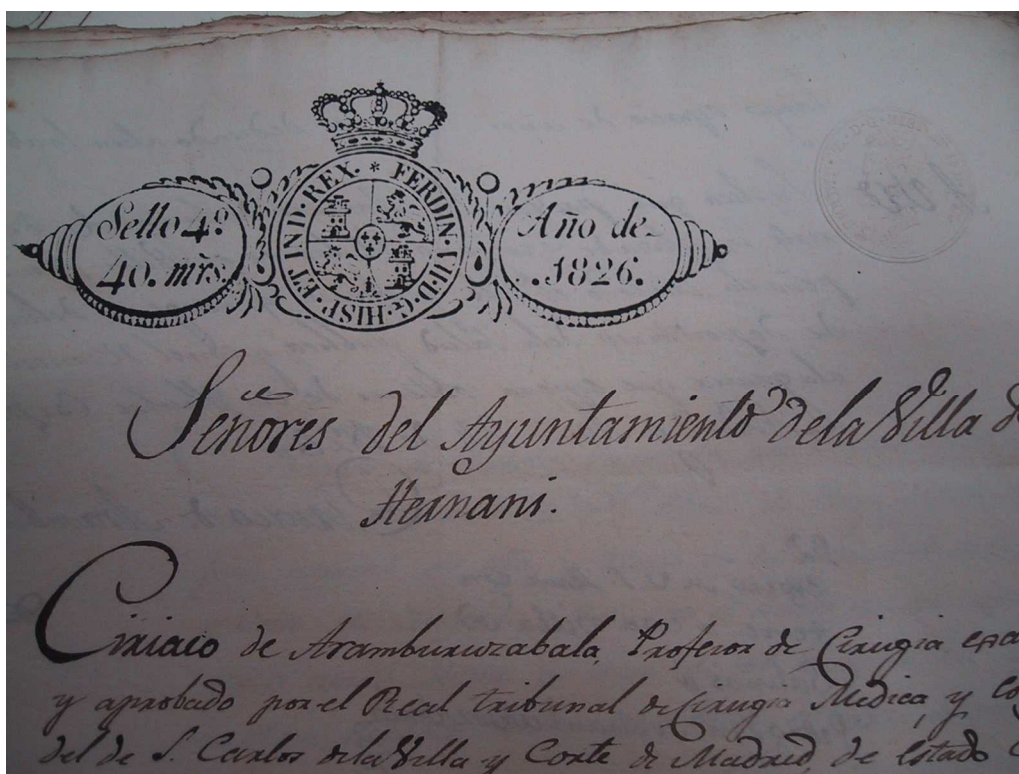 Sello 4º
40. mrs.
FERDIN·VII·D·G·HISP·ET IND·REX·
Año de
.1826.
Señores del Ayuntamiento de la Villa d
Hernani.
Ciriaco de Aramburuzabala, Profesor de Cirugia
y aprobado por el Real tribunal de Cirugia Medica, y
del de S. Carlos de la Villa y Corte de Madrid, de estado